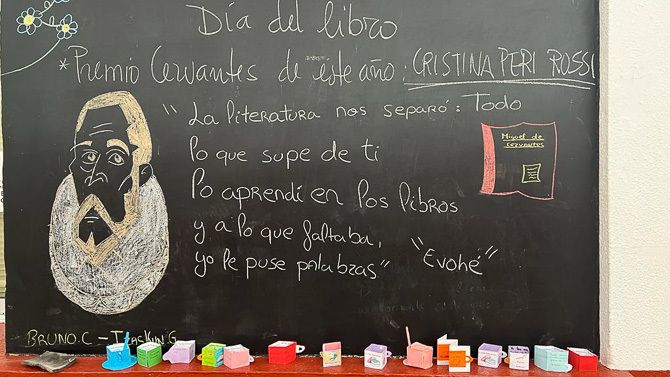 Día del libro
*Premio Cervantes de este año: CRISTINA PERI ROSSI
"La literatura nos separó: Todo
lo que supe de ti
lo aprendí en los libros
y a lo que faltaba,
yo le puse palabras"
"Evohé"
Miguel de
cervantes
BRUNO.C -